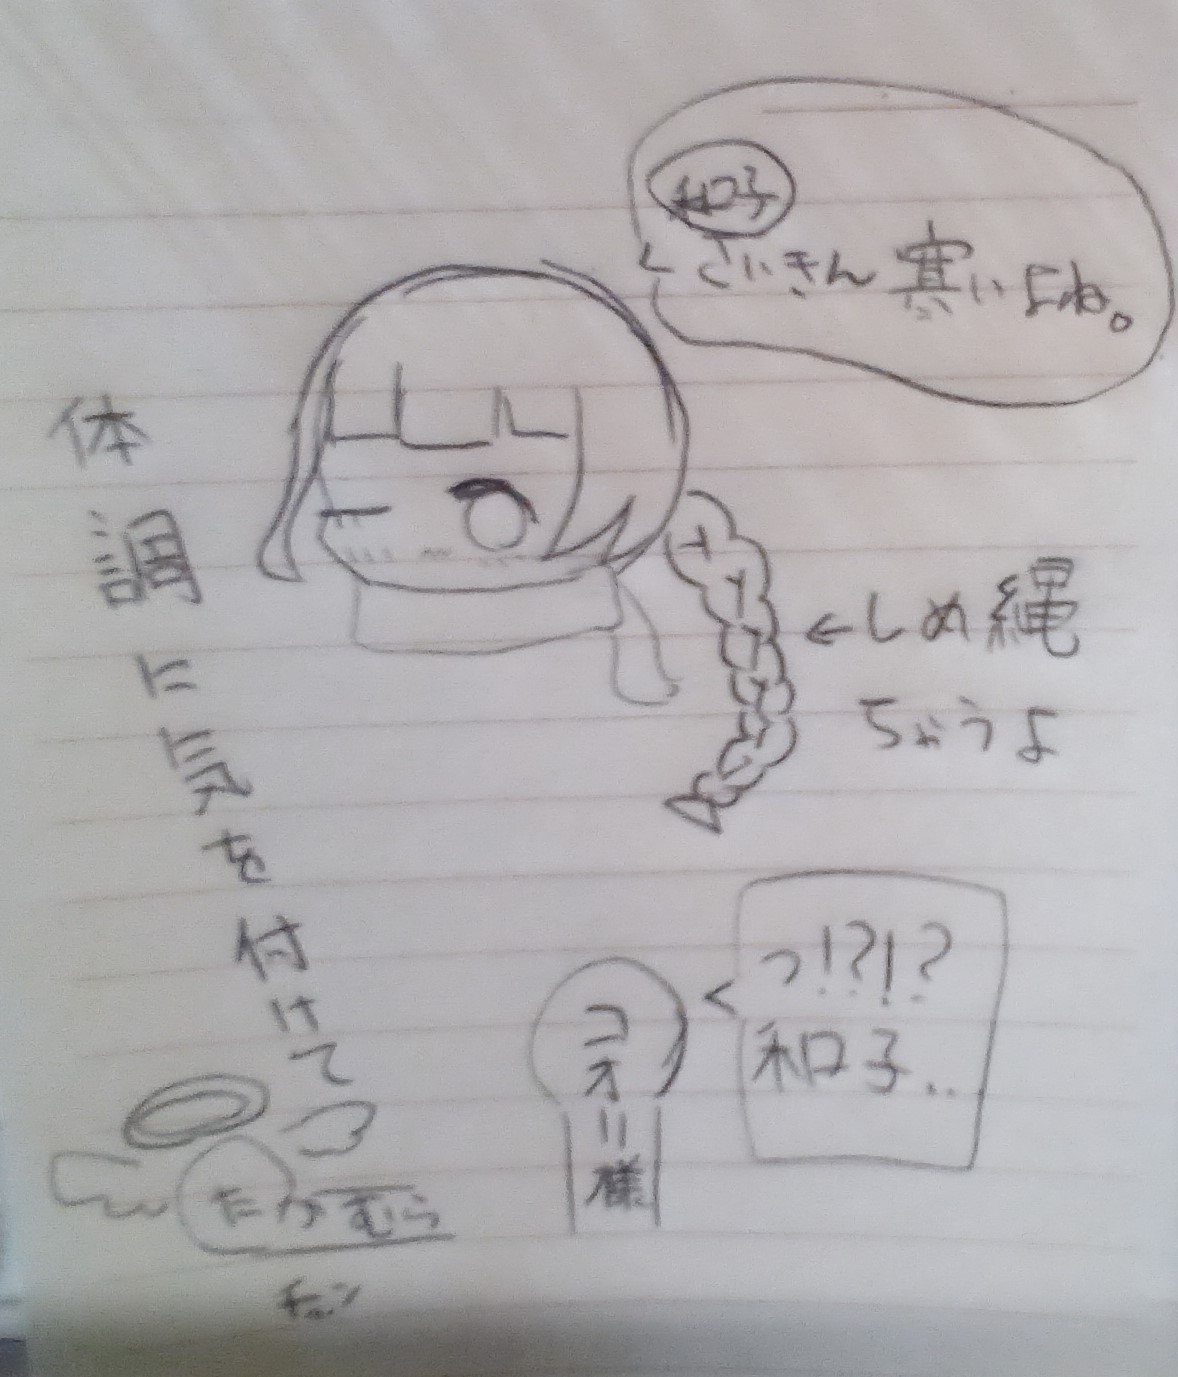 和子
さいきん寒いよね。
体調に気を付けて
←しめ縄
ちょうよ
っ!?!?
和子..
コオリ様
たかむら
チュン